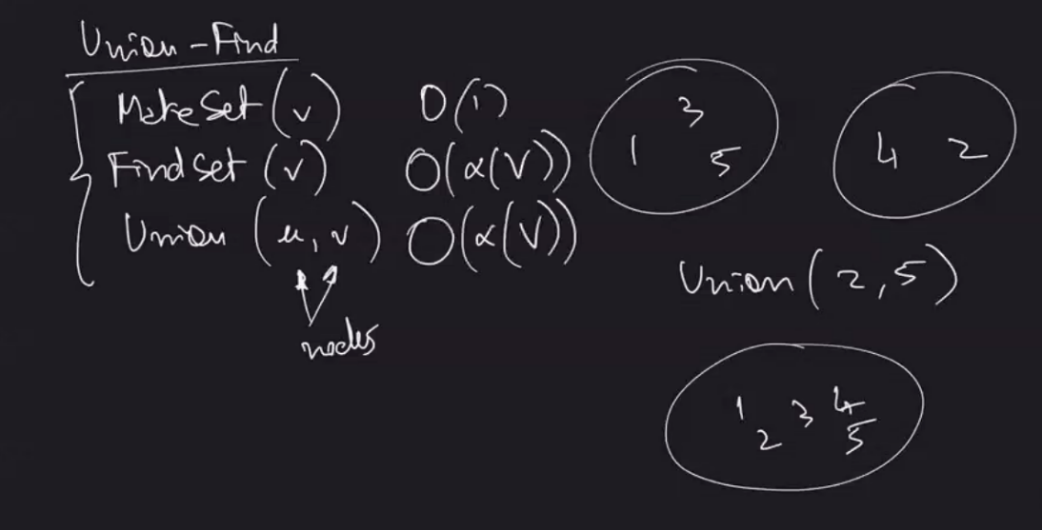 Union-Find
MakeSet (v) O(1)
FindSet (v) O(α(V))
Union (u, v) O(α(V))
nodes
3
1 5
4 2
Union (2,5)
1 3 4
2 5